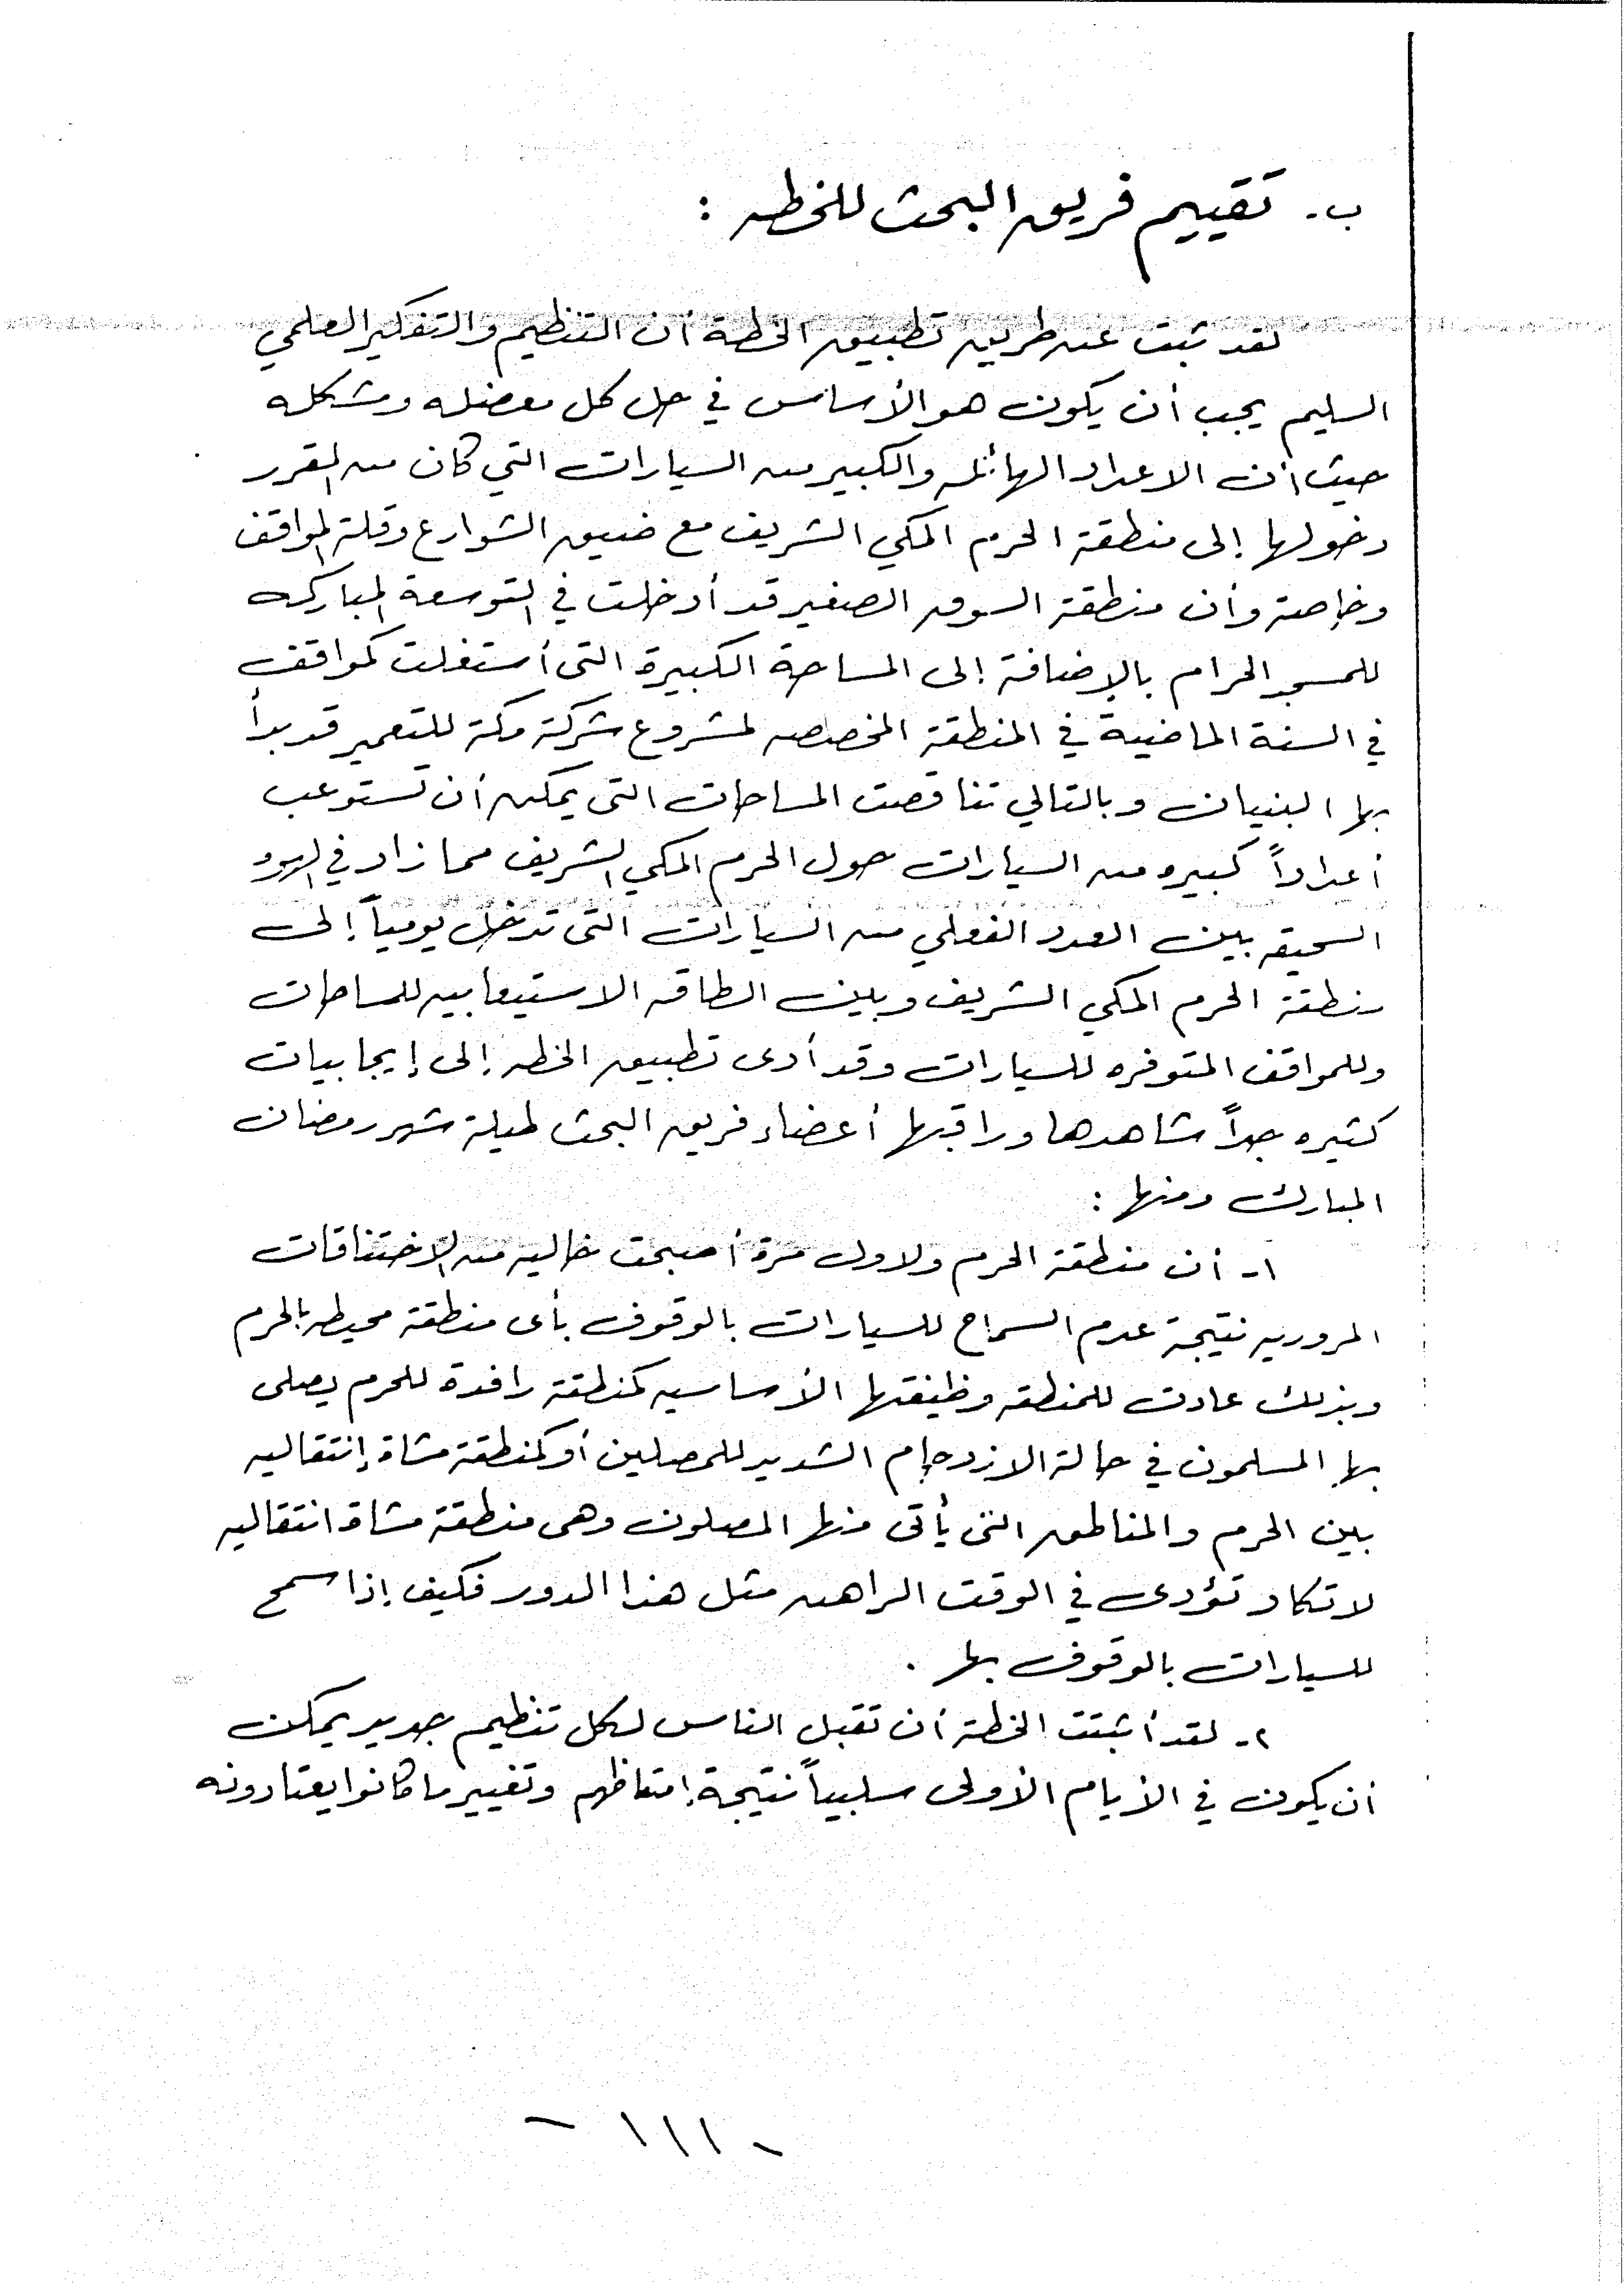 ب - تقييم فريق البحث للخطه :
لقد ثبت عن طريق تطبيق الخطة أن التنظيم والتفكير العلمي
السليم يجب أن يكون هو الأساس في حل كل معضله ومشكله
حيث أن الاعداد الهائله والكبير من السيارات التي كان من المقرر
دخولها إلى منطقة الحرم المكي الشريف مع ضيق الشوارع وقلة المواقف
وخاصة وأن منطقة السوق الصغير قد أدخلت في التوسعة المباركه
للمسجد الحرام بالإضافة إلى المساحة الكبيرة التى أستغلت كمواقف
في السنة الماضية في المنطقة المخصصه لمشروع شركة مكة للتعمير قد بدأ
بها البنيان وبالتالي تناقصت المساحات التى يمكن أن تستوعب
أعداداً كبيره من السيارات حول الحرم المكي الشريف مما زاد في الهوه
السحيقه بين العدد الفعلي من السيارات التى تدخل يومياً إلى
منطقة الحرم المكي الشريف وبين الطاقه الاستيعابيه للمساحات
وللمواقف المتوفره للسيارات وقد أدى تطبيق الخطه إلى إيجابيات
كثيره جداً شاهدها وراقبها أعضاء فريق البحث طيلة شهر رمضان
المبارك ومنها :
١- أن منطقة الحرم ولاول مرة أصبحت خاليه من الاختناقات
المروريه نتيجة عدم السماح للسيارات بالوقوف بأى منطقة محيطه بالحرم
وبذلك عادت للمنطقه وظيفتها الأساسيه كمنطقة رافدة للحرم يصلى
بها المسلمون في حالة الازدحام الشديد للمصلين أو كمنطقة مشاة إنتقاليه
بين الحرم والمناطق التى يأتى منها المصلون وهى منطقة مشاة انتقاليه
لا تكاد تؤدى في الوقت الراهن مثل هذا الدور فكيف إذا سمح
للسيارات بالوقوف بها .
٢- لقد أثبتت الخطة أن تقبل الناس لكل تنظيم جديد يمكن
أن يكون في الأيام الأولى سلبياً نتيجة إمتعاظهم وتغيير ما كانوا يعتادونه
- ١١١ -